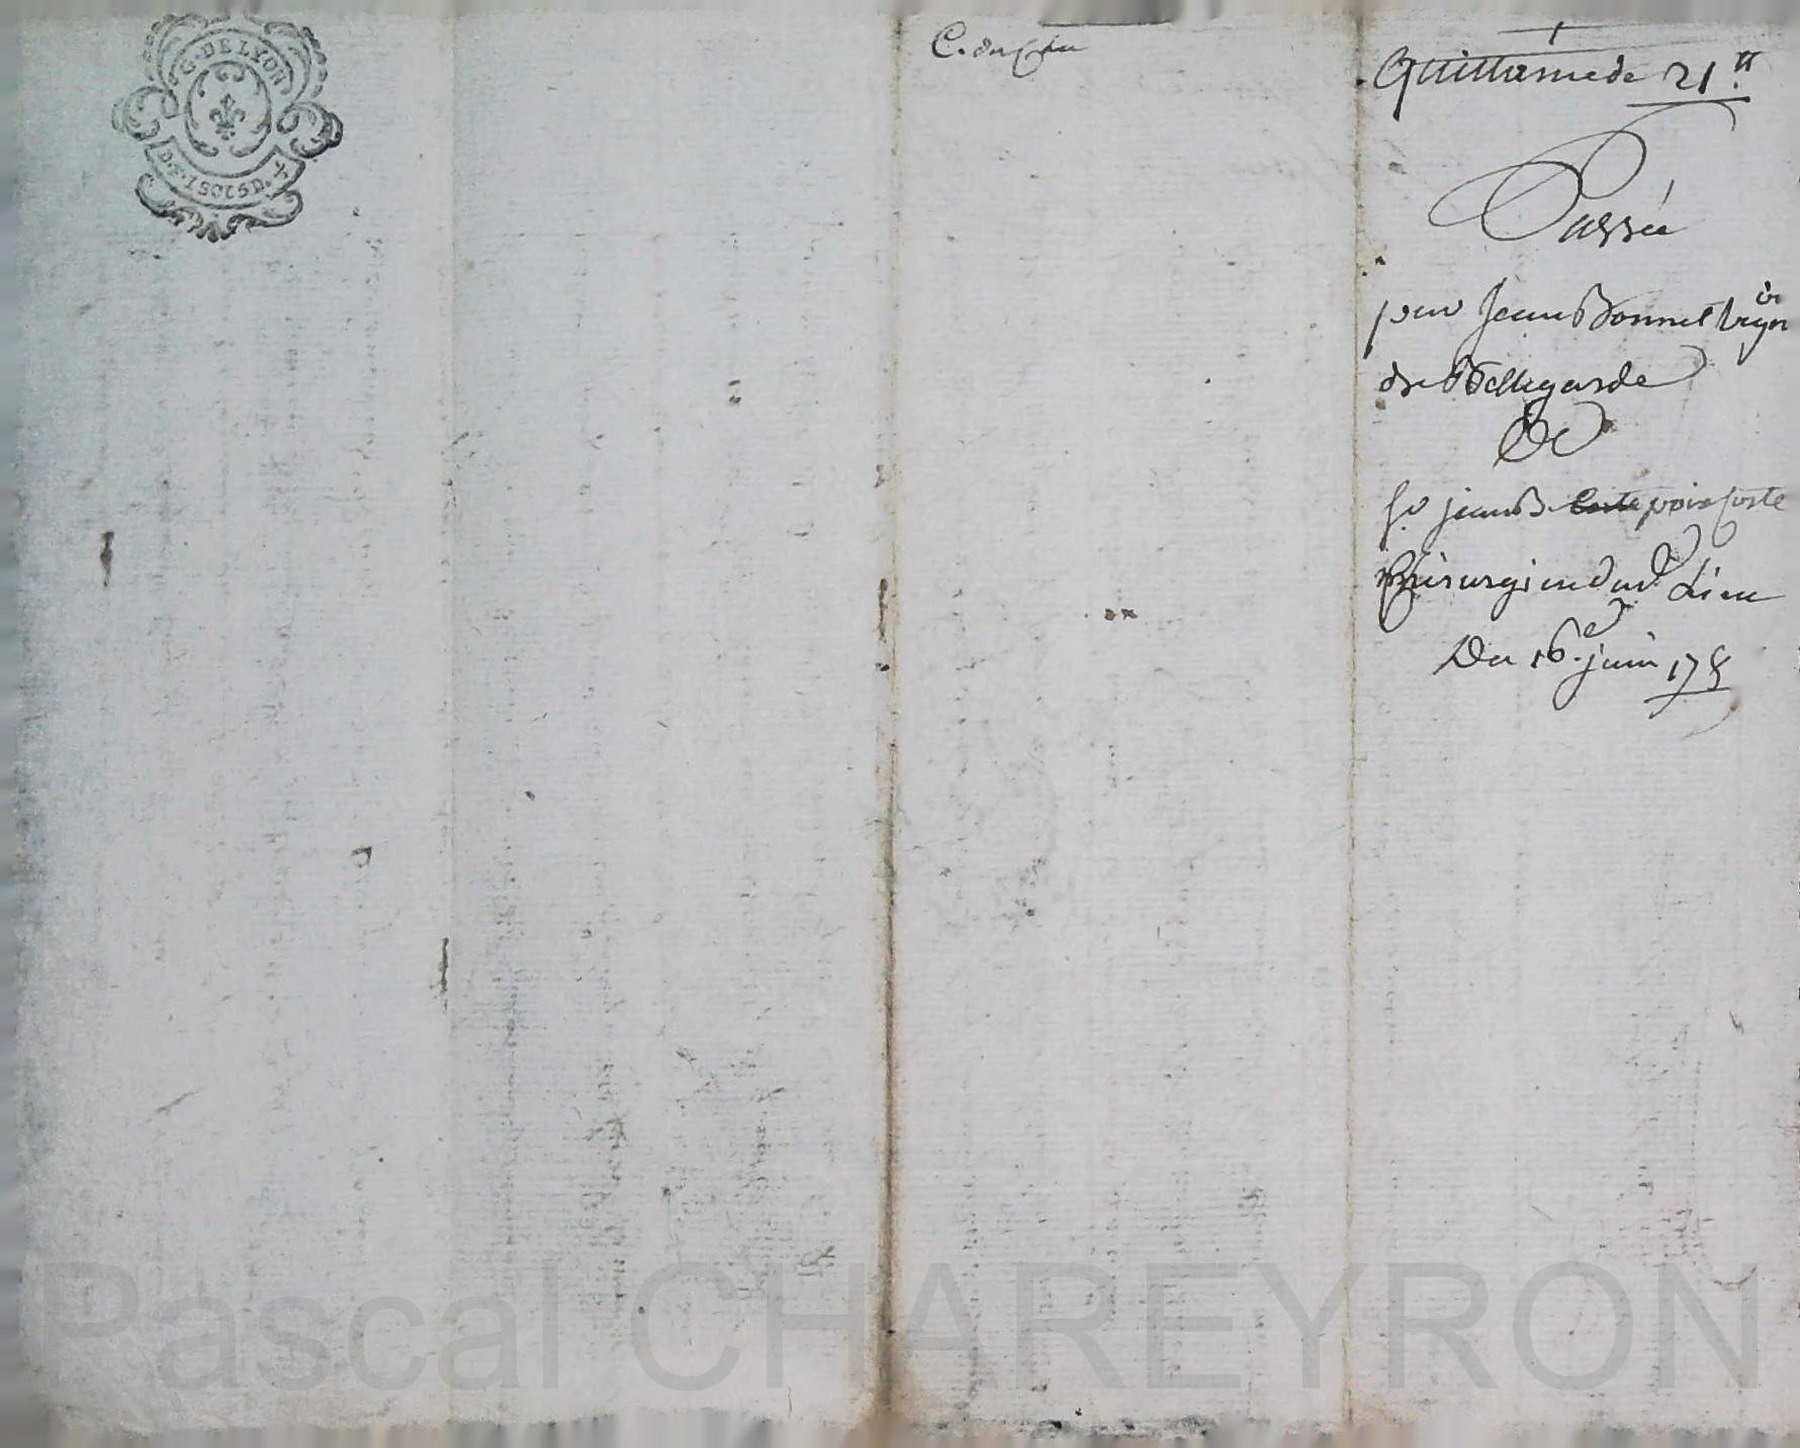 G. DE LYON
D.S. 1 SOL 5 D.
C. du
Quittance de 21 ₶.
Passée
par Jean Bonnet vigon
de Bellegarde
De
Sr jean B poixforte
Chirurgien dud. Lieu
Du 16e. juin 178
Pascal CHAREYRON